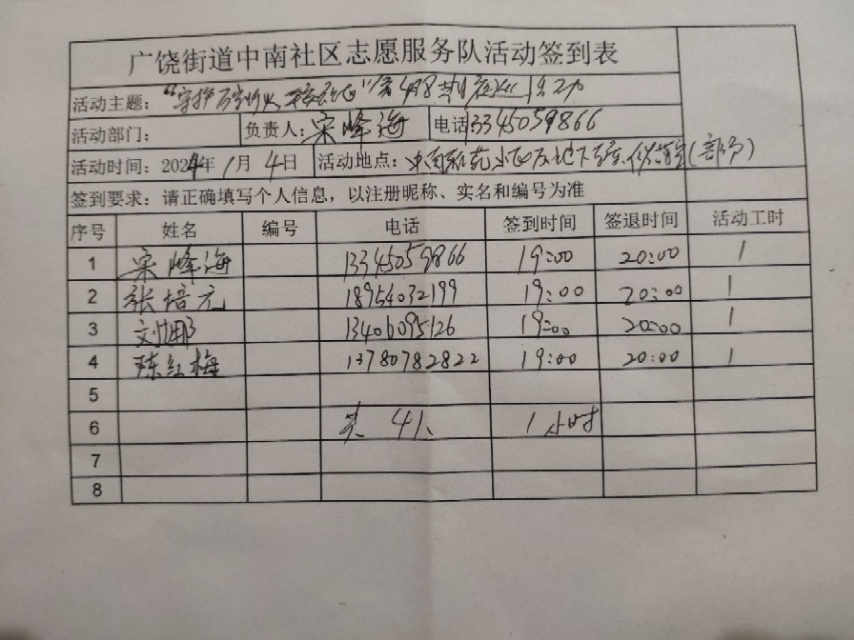 广饶街道中南社区志愿服务队活动签到表
活动主题：“守护万家灯火
活动部门： 负责人：宋峰海 电话13345059866
活动时间：2024年1月4日 活动地点：
签到要求：请正确填写个人信息，以注册昵称、实名和编号为准
序号 姓名 编号 电话 签到时间 签退时间 活动工时
1 宋峰海 13345059866 19:00 20:00 1
2 张培元 18954032199 19:00 20:00 1
3 刘娜 13406095126 19:00 20:00 1
4 陈红梅 13780782822 19:00 20:00 1
5
6 共 4人 1小时
7
8